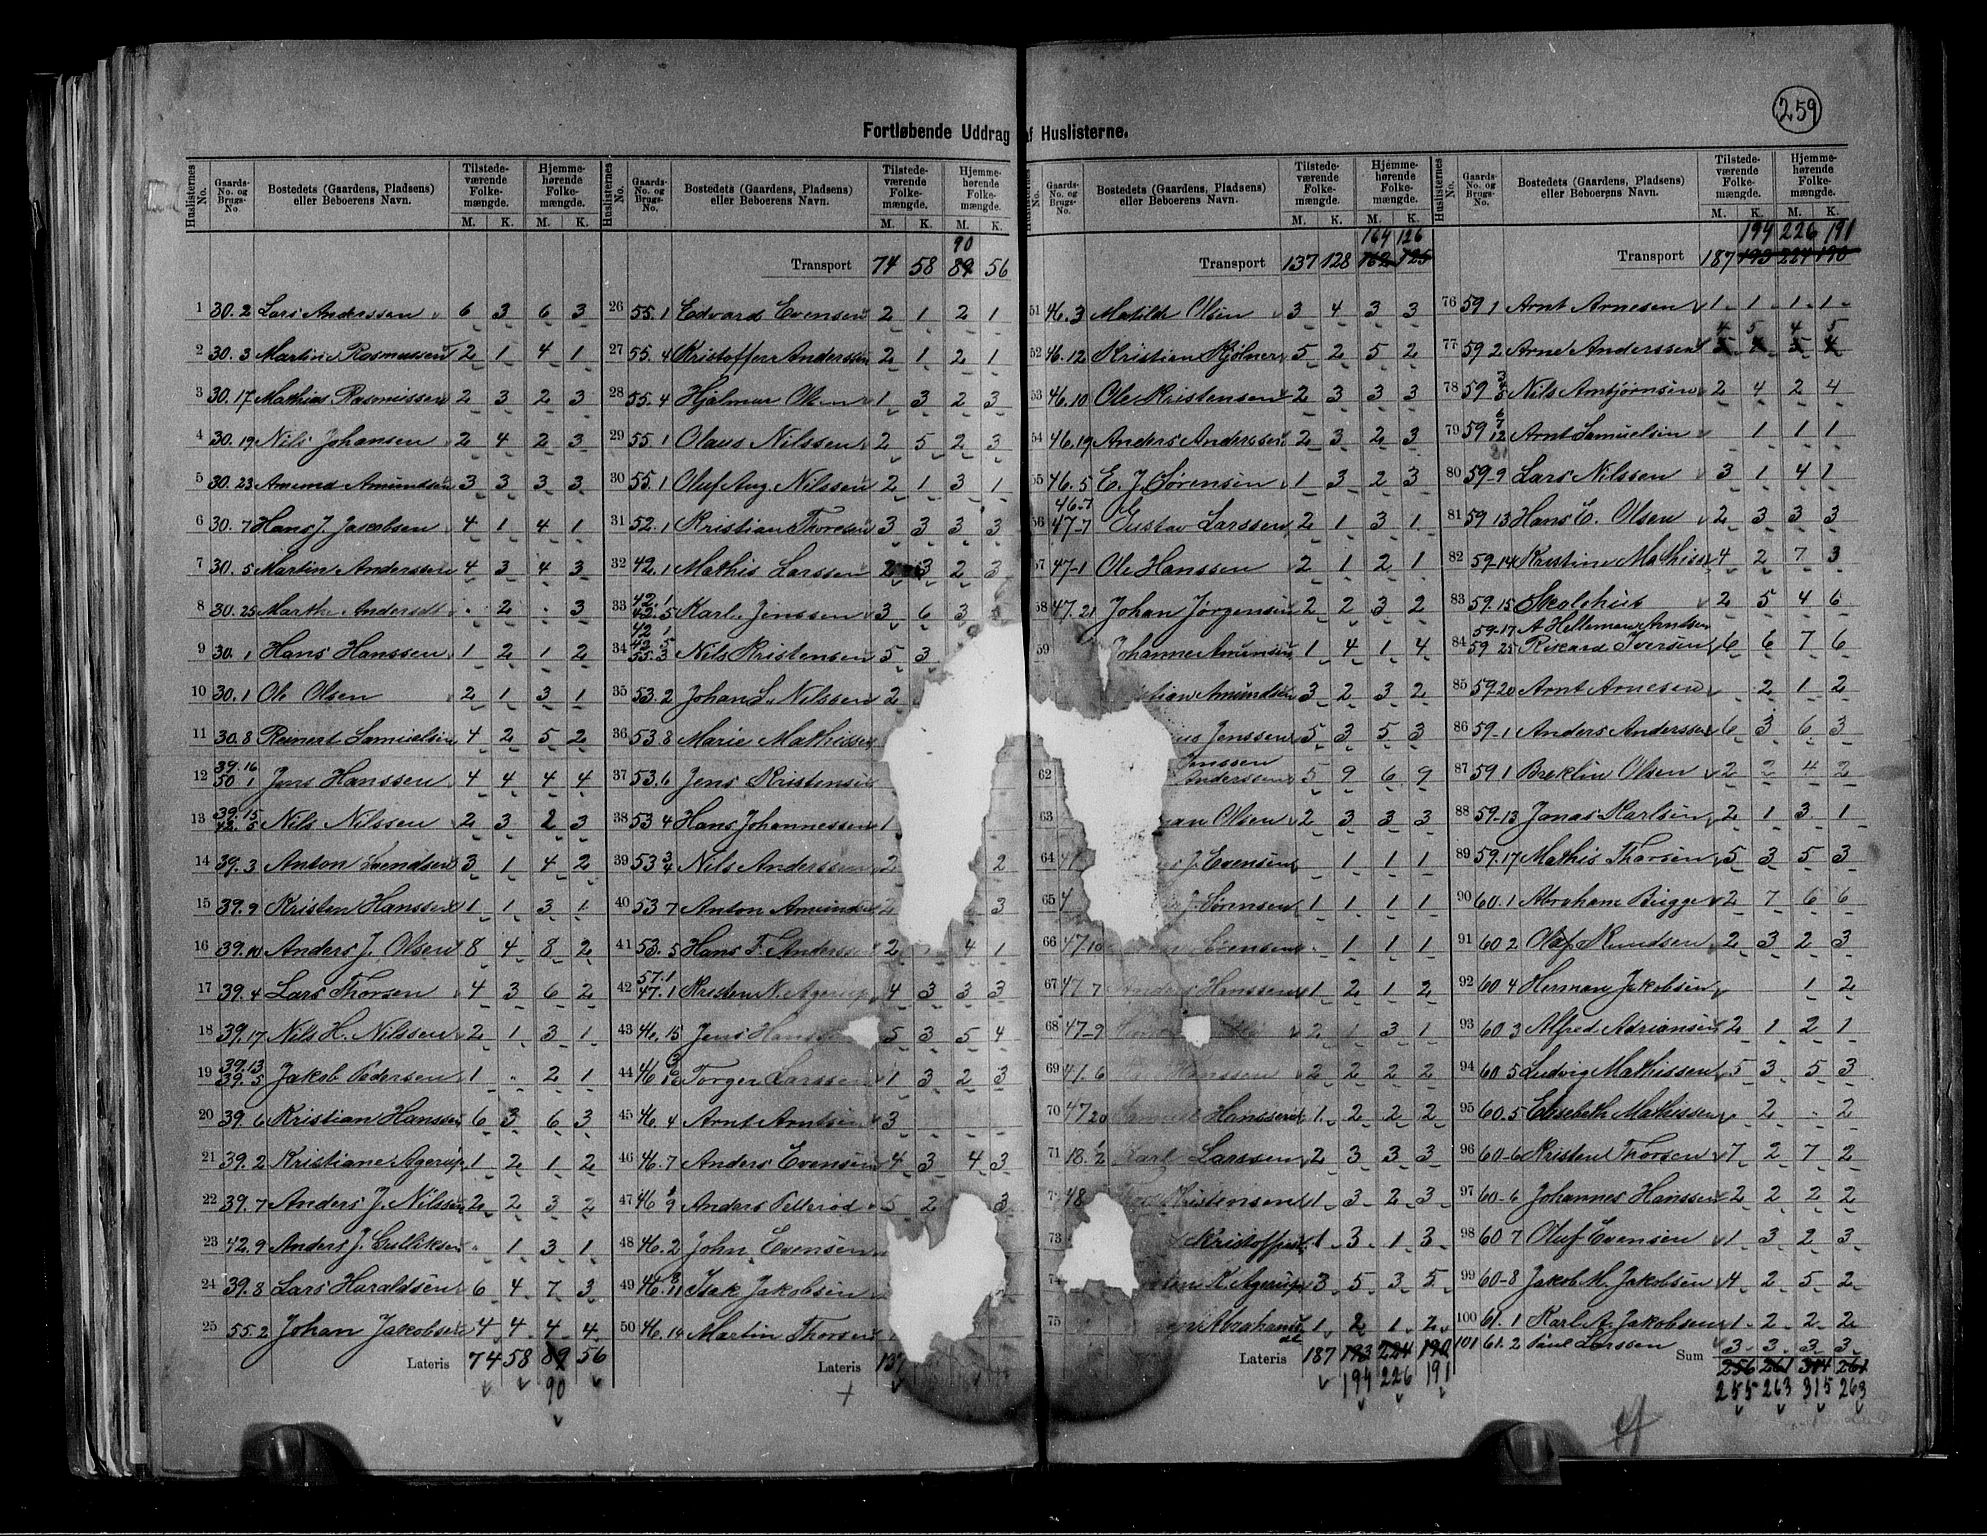 259
Fortløbende Uddrag af Huslisterne.
Huslisternes No. Gaards-No. og Brugs-No. Bostedets (Gaardens, Pladsens) eller Beboerens Navn. Tilstedeværende Folkemængde. M. K. Hjemmehørende Folkemængde. M. K.
1 30.2 Lars Anderssen 6 3 6 3
2 30.3 Martin Rasmussen 2 1 4 1
3 30.17 Mathias Rasmussen 2 3 2 3
4 30.19 Nils Johansen 2 4 2 3
5 30.23 Amund Amundsen 3 3 3 3
6 30.7 Hans J. Jakobsen 4 1 4 1
7 30.5 Martin Anderssen 4 3 4 3
8 30.25 Marthe Andersdt. - 2 - 3
9 30.1 Hans Hanssen 1 2 1 2
10 30.1 Ole Olsen 2 1 3 1
11 30.8 Reinert Samuelsen 4 2 5 2
12 39.16 50 1 Jens Hanssen 4 4 4 4
13 39.15 42.5 Nils Nilssen 2 3 2 3
14 39.3 Anton Svendsen 3 1 4 2
15 39.9 Kristen Hanssen 1 1 3 1
16 39.10 Anders J. Olsen 8 4 8 2
17 39.4 Lars Thorsen 4 3 6 2
18 39.17 Nils H. Nilssen 2 1 3 1
19 39.13 39.5 Jakob Pedersen 1 - 2 1
20 39.6 Kristian Hanssen 6 3 6 3
21 39.2 Kristiane Agerup 1 2 1 2
22 39.7 Anders J. Nilssen 2 2 3 2
23 42.9 Anders J. - 1 3 1
24 39.8 Lars Haraldsen 6 4 7 3
25 55.2 Johan Jakobsen 4 4 4 4
Lateris 74 58 89 56
90
Huslisternes No. Gaards-No. og Brugs-No. Bostedets (Gaardens, Pladsens) eller Beboerens Navn. Tilstedeværende Folkemængde. M. K. Hjemmehørende Folkemængde. M. K.
90
Transport 74 58 89 56
26 55.1 Edvard Evensen 2 1 2 1
27 55.4 Kristoffer Anderssen 2 1 2 1
28 55.4 Hjalmar Olsen 1 3 2 3
29 55.1 Olaus Nilssen 2 5 2 3
30 55.1 Oluf Aug. Nilssen 2 1 3 1
31 52.1 Kristian Thoresen 3 3 3 3
32 42.1 Mathis Larssen 2 3 2 3
33 42.1 42.5 Karl Jenssen 3 6 3
34 42 1 42 5 55.3 Nils Kristensen 5 3
35 53.2 Johan L. Nilssen 2
36 53.8 Marie Mathissen
37 53.6 Jens Kristensen
38 53 4 Hans Johannessen 1
39 53 3/4 Nils Anderssen 2 2
40 53 7 Anton Amundsen 2 3
41 53.5 Hans F. Anderssen 2 4 1
42 57.1 47.1 Kristen N. Agerup 4 3 3 3
43 46.15 Jens Hanssen 5 3 5 4
44 46 Torger Larssen 1 3 2 3
45 46.4 Arnt Arntsen 3
46 46.7 Anders Evensen 4 3 4 3
47 46 9 Anders Pellerød 5 2 3
48 46.2 John Evensen
49 46.11 Isak Jakobsen
50 46.14 Martin Thorsen
Lateris 137
Gaards-No. og Brugs-No. Bostedets (Gaardens, Pladsens) eller Beboerens Navn. Tilstedeværende Folkemængde. M. K. Hjemmehørende Folkemængde. M. K.
164 126
Transport 137 128 162 125
51 46.3 Matilde Olsen 3 4 3 3
52 46.12 Kristian Kjølner 5 2 5 2
53 46.10 Ole Kristensen 2 3 3 3
54 46.19 Anders Anderssen 2 3 2 3
55 46.5 E. J. Sørensen 1 3 2 3
56 46-7 47-7 Gustav Larssen 2 1 3 1
57 47-1 Ole Hanssen 2 1 2 1
58 47.21 Johan Jørgensen 2 2 3 2
59 Johanne Amundsen 1 4 1 4
stian Amundsen 3 2 3 2
us Jenssen 5 3 5 3
62 Jenssen Anderssen 5 9 6 9
63 an Olsen 2 3 3 3
64 47. s J. Evensen 1 1 1
65 4 J. Sørensen 1 1 1 1
66 47.10 Sørensen - 1 1 1
67 47 7 Anders Hanssen 1 2 1 2
68 47-9 2 1 3 1
69 47.6 Hanssen 2 2 2 2
70 47 20 Hanssen 1 2 2 2
71 18.2 Karl Larssen 2 3 3 3
48 Kristensen 1 3 2 3
73 Kristoffersen 1 3 1 3
74 K. Agerup 3 5 3 5
75 Abrahams 1 2 1 2
Lateris 187 193 224 190
194 226 191
Huslisternes No. Gaards-No. og Brugs-No. Bostedets (Gaardens, Pladsens) eller Beboerens Navn. Tilstedeværende Folkemængde. M. K. Hjemmehørende Folkemængde. M. K.
194 226 191
Transport 187 193 224 190
76 59 1 Arnt Arnesen 1 1 1 1
4 5 4 5
77 59 2 Arne Anderssen 3 4 3 4
78 59 Nils Arnbjørnsen 2 4 2 4
79 59 12 Arnt Samuelsen 1 1 1
80 59-9 Lars Nilssen 3 1 4 1
81 59 13 Hans E. Olsen 2 3 3 3
82 59-14 Kristine Mathisen 4 2 7 3
83 59.15 Skolehus 2 5 4 6
59-17 A Hellemans Arntsen
84 59 25 Rikard Iversen 6 6 7 6
85 59.20 Arnt Arnesen 2 1 2
86 59.1 Anders Anderssen 6 3 6 3
87 59 1 Breklin Olsen 2 2 4 2
88 59.13 Jonas Karlsen 2 1 3 1
89 59.17 Mathis Thorsen 5 3 5 3
90 60.1 Abraham Bugge 2 7 6 6
91 60 2 Olaf Knudsen 2 3 2 3
92 60 4 Herman Jakobsen 1 2
93 60 3 Alfred Adriansen 2 1 2 1
94 60 5 Ludvig Mathissen 5 3 5 3
95 60.5 Elisabeth Mathissen 2 - 2
96 60-6 Kristen Thorsen 7 2 7 2
97 60-6 Johannes Hanssen 2 2 2 2
98 60 7 Oluf Evensen 1 3 2 3
99 60-8 Jakob M. Jakobsen 4 2 5 2
100 61.1 Karl A. Jakobsen 1 2 2 2
101 61.2 Larssen 3 3 3 3
Sum 256 261 314 261
255 263 315 263